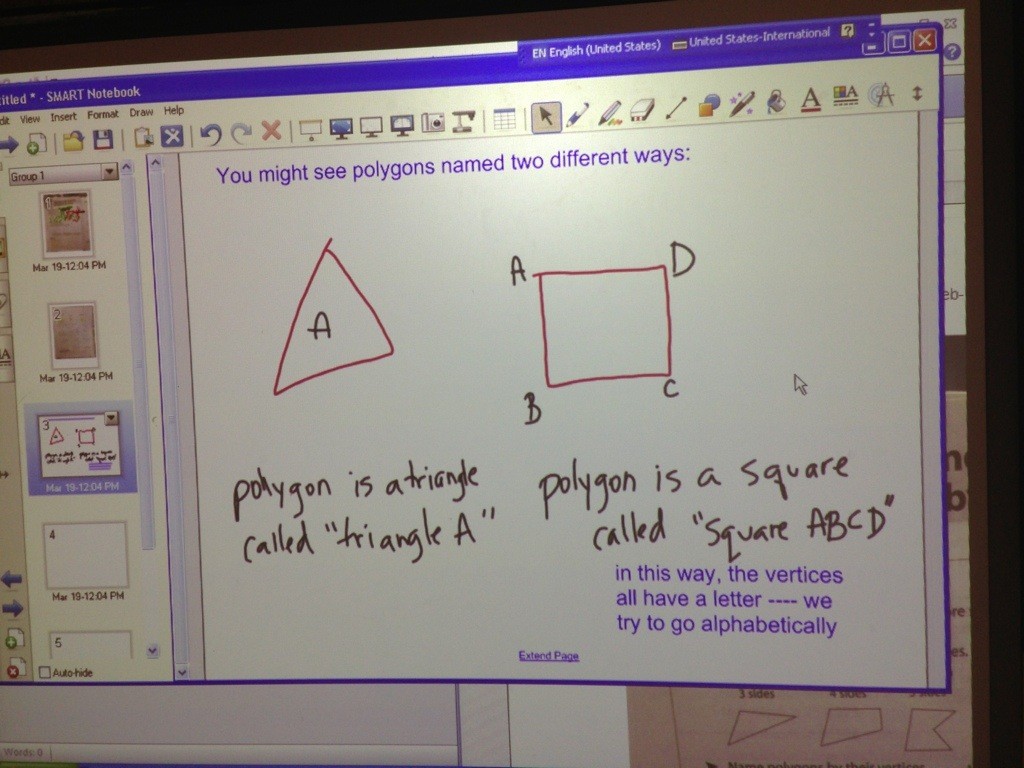 EN English (United States) United States-International ?
titled * - SMART Notebook
dit View Insert Format Draw Help
Group 1
You might see polygons named two different ways:
Mar 19-12:04 PM
2
Mar 19-12:04 PM
3
Mar 19-12:04 PM
4
Mar 19-12:04 PM
5
Auto-hide
A
A D
B C
polygon is a triangle
called "triangle A"
polygon is a square
called "Square ABCD"
in this way, the vertices
all have a letter ---- we
try to go alphabetically
Extend Page
eb-
3 sides 4 sides
Name polygons by their vertices
Words: 0